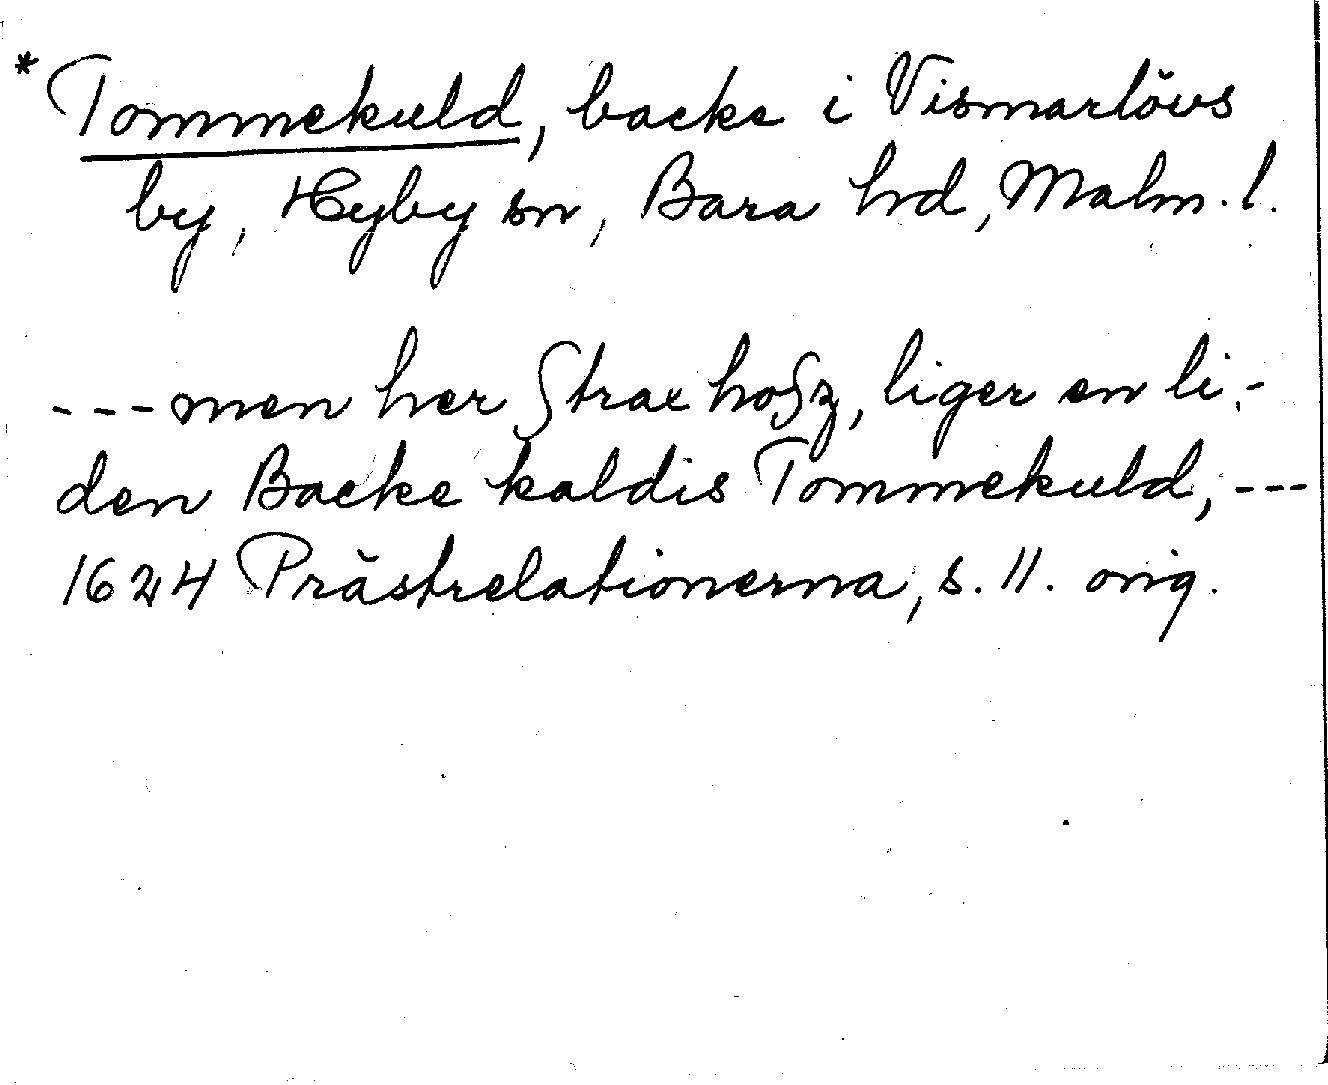 * Tommekuld, backe i Vismarlövs
by, Hyby sn, Bara hd, Malm. l.
---men her strax hosz, liger en li-
den Backe kaldis Tommekuld, ---
1624 Prästrelationerna, s. 11. orig.